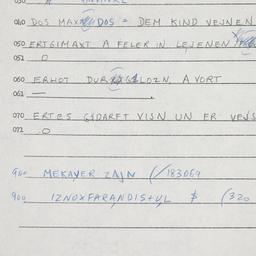 040 DOS MAX DOS = DEM KIND VEJNEN
050 ERTGIMAXT A FELER IN LEJENEN
051 O
060 ERHOT DURXGELOZN. A VORT
061 —
070 ERTES GIDARFT VISN UN ER VEJS
071 O
900 MEKAYER ZAJN (/183069
900 IZNOXFARANDIS+UL $ (320